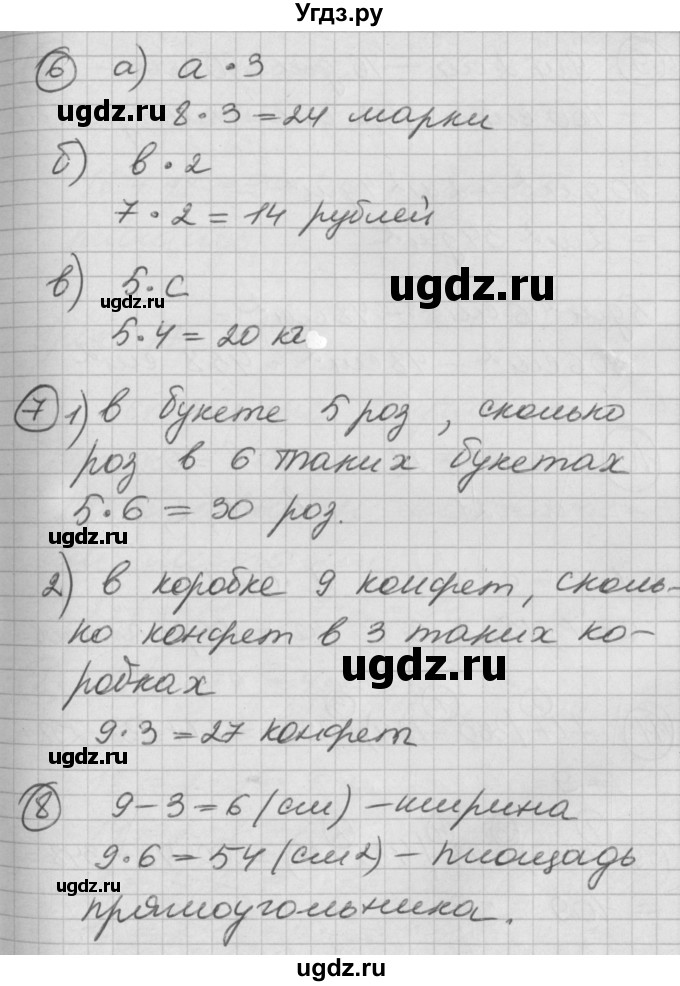 Угдз.ру
6 а) а · 3
ugdz.ru 8 · 3 = 24 марки
б) в · 2
7 · 2 = 14 рублей
ugdz.ru
в) 5 · с
ugdz.ru
5 · 4 = 20 кг
7 1) в букете 5 роз, сколько
роз в 6 таких букетах
5 · 6 = 30 роз.
ugdz.ru
2) в коробке 9 конфет, сколь-
ко конфет в 3 таких ко-
ugdz.ru
робках
9 · 3 = 27 конфет
ugdz.ru
8 9 - 3 = 6 (см) - ширина
9 · 6 = 54 (см2) - площадь
ugdz.ru
прямоугольника.
ugdz.ru